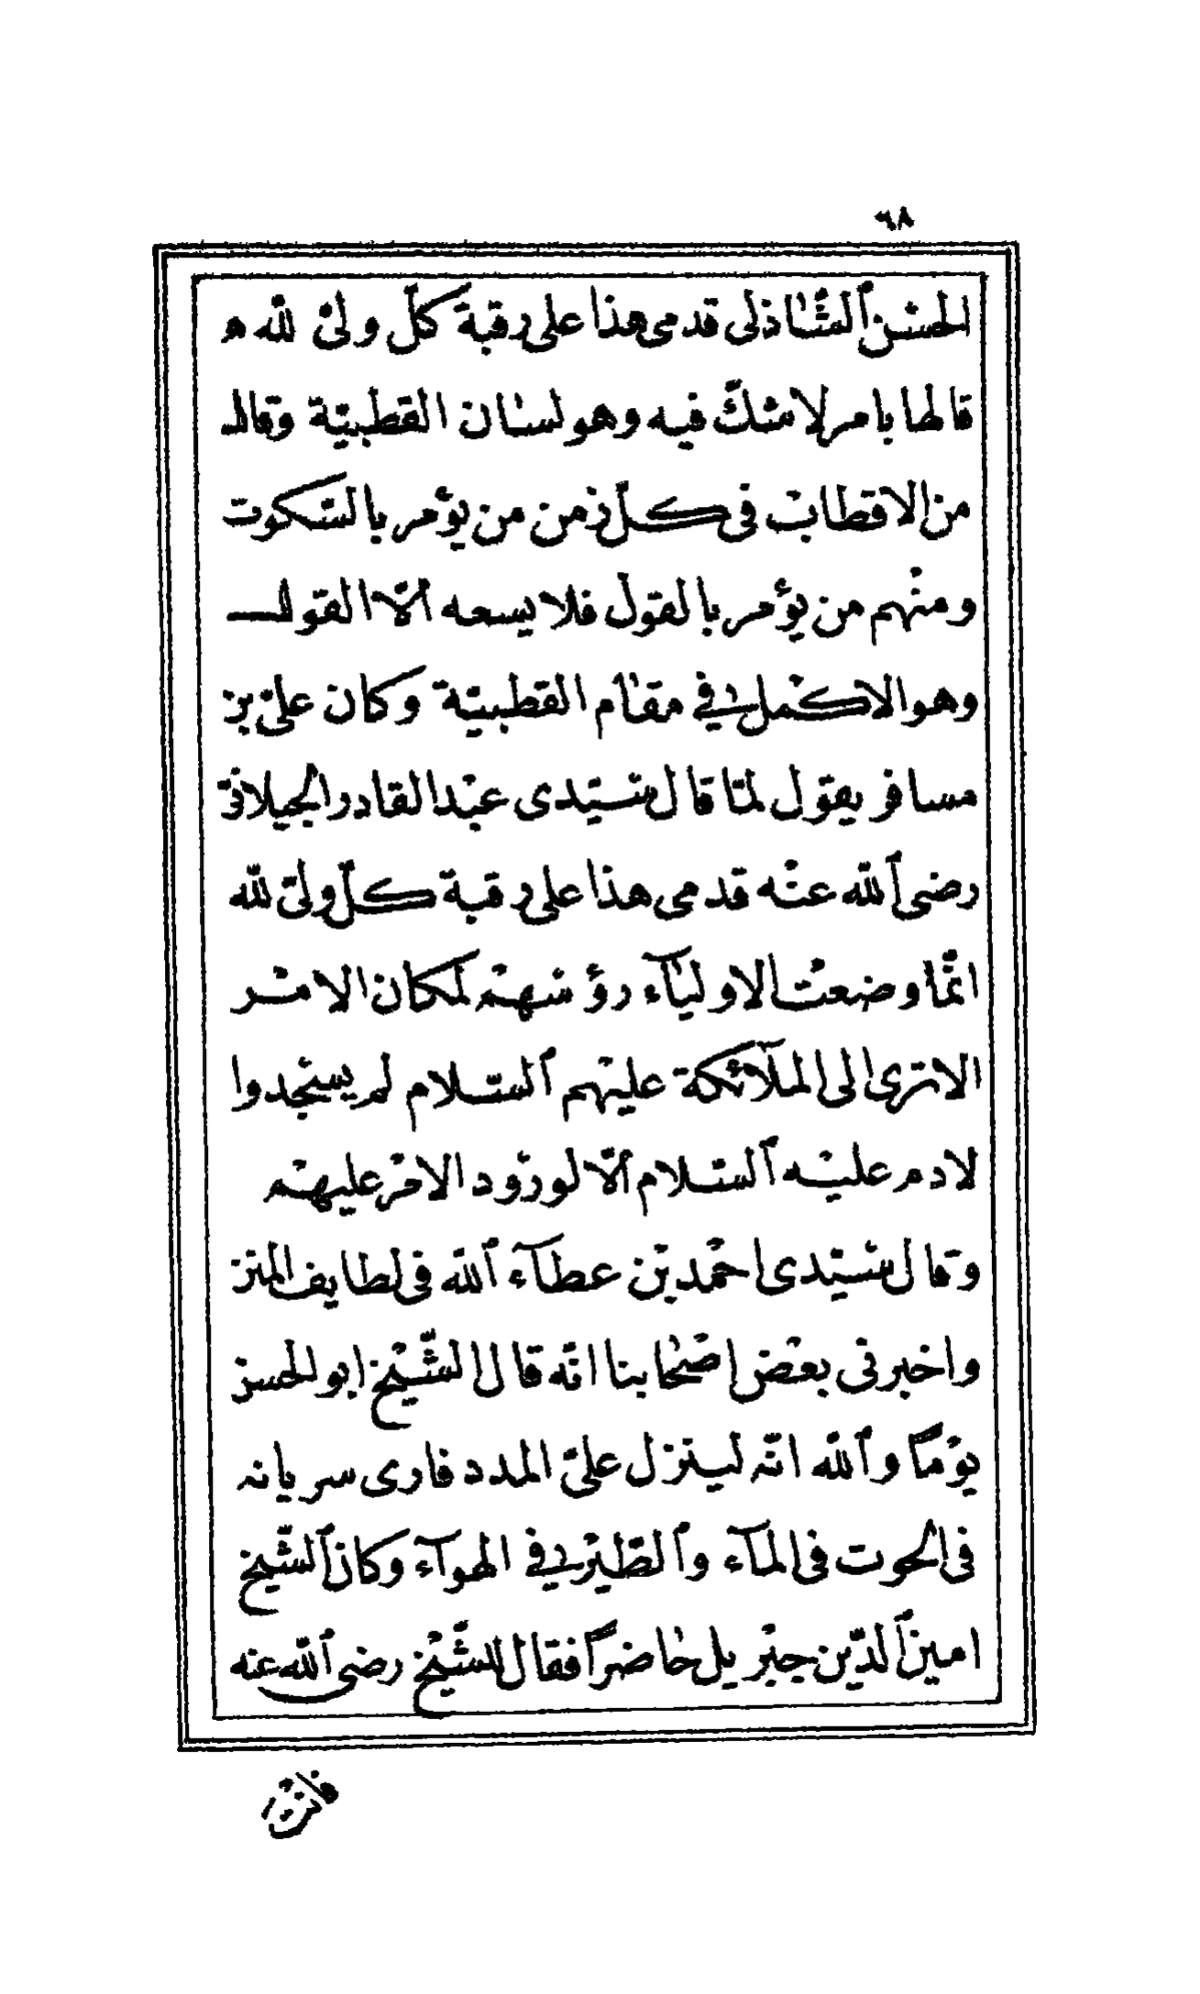 ٦٨
الحسن الشاذلى قدمى هذا على رقبة كلّ ولىّ لله م
قالها بامر لا شكّ فيه وهو لسان القطبيّة وقال
من الاقطاب فى كلّ زمن من يؤمر بالسّكوت
ومنهم من يؤمر بالقول فلا يسعه الّا القول
وهو الاكمل فى مقام القطبيّة وكان علىّ بن
مسافر يقول لمّا قال سيّدى عبد القادر الجيلانىّ
رضى الله عنه قدمى هذا على رقبة كلّ ولىّ لله
انّما وضعت الاوليآء رؤسهم لمكان الامر
الا ترى الى الملآئكة عليهم السّلام لم يسجدوا
لادم عليه السّلام الّا لورود الامر عليهم
وقال سيّدى احمد بن عطآء الله فى لطايف المنن
واخبرنى بعض اصحابنا انّه قال الشّيخ ابو الحسن
يومًا والله انّه لينزل علىّ المدد فارى سريانه
فى الحوت فى المآء والطّير فى الهوآء وكان الشّيخ
امين الدّين جبريل حاضرًا فقال للشّيخ رضى الله عنه
فانت